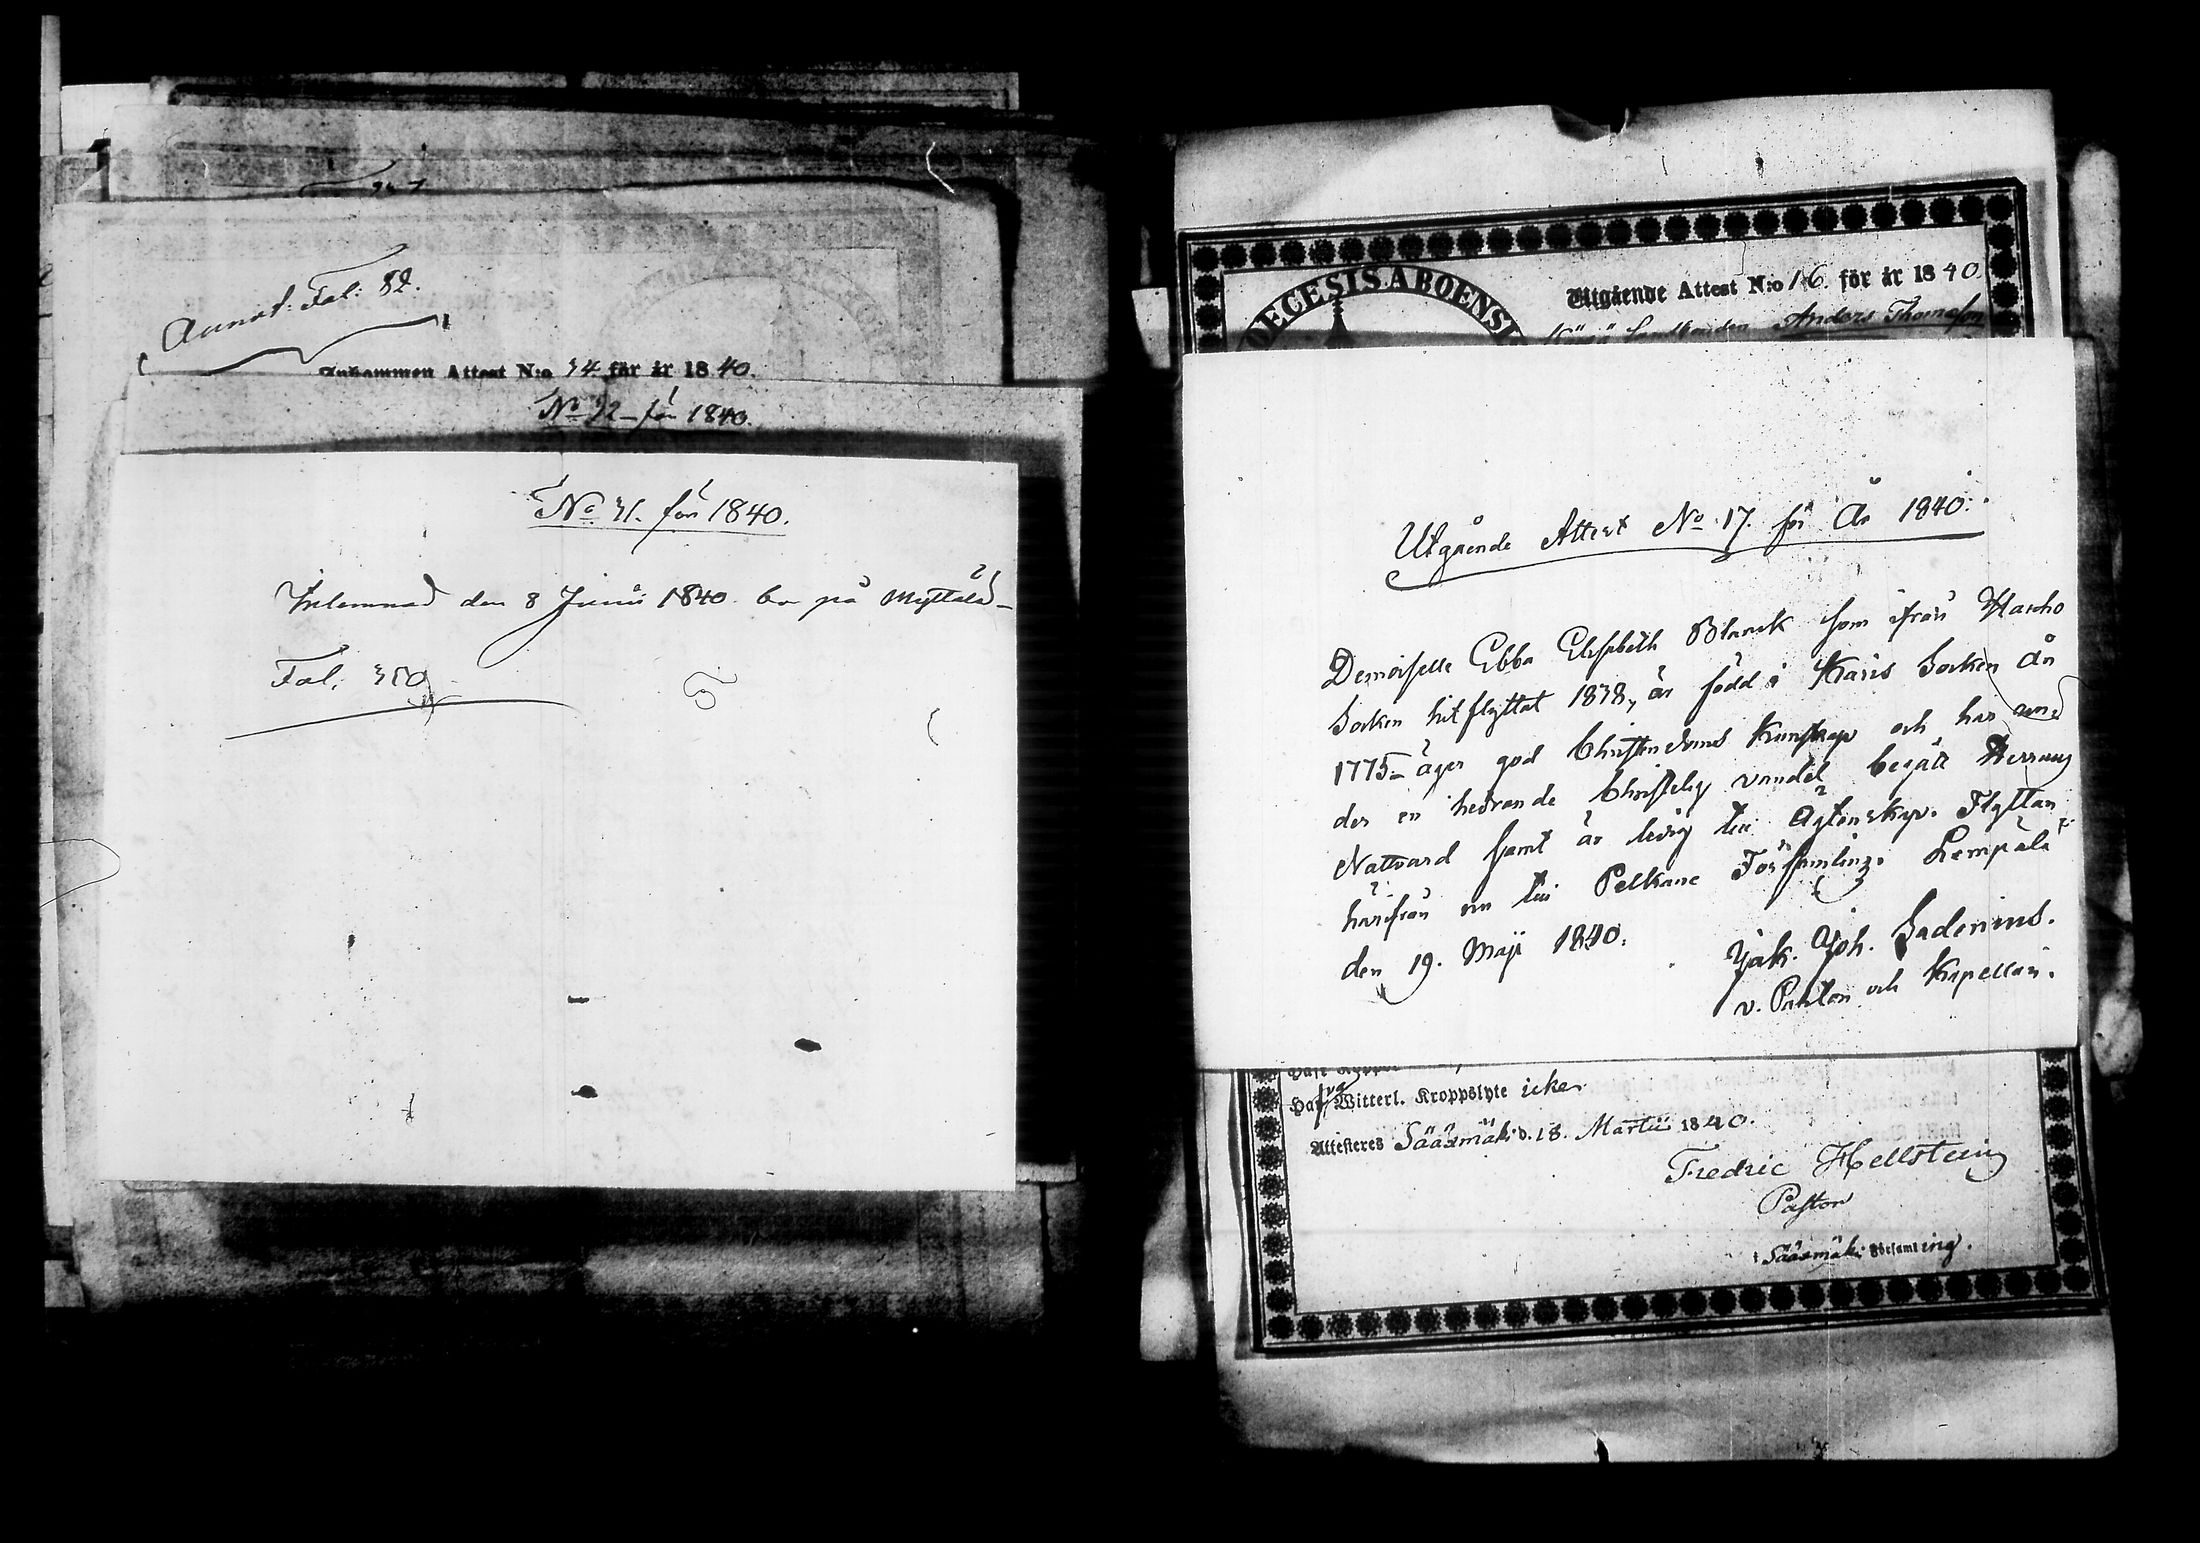 Annot. Fol: 82.
Inkommen Attest N:o 34 för år 1840.
No 32 för 1840.
No 31. för 1840.
Inlemnad den 8 Junii 1840. bor på Myttälä
Fol. 350
DIOECESIS ABOENSI
Utgående Attest N:o 16. för år 1840
Anders Thomasson
Utgående Attest No 17. för År 1840.
Demoiselle Ebba Elisabeth Blanck som ifrån Haucho
Socken hit flyttat 1838, är född i Karis Socken År
1775 – äger god Christendoms Kunskap och har und
der en hedrande Christelig vandel begått Herrans
Nattvard samt är ledig till Ägtenskap. Flyttar
härifrån nu till Pelkäne Församling. Lempälä
den 19. Maji 1840.
Jak. Joh. Sadenius.
v. Pastor och Kapellan.
Witterl. Kroppslyte icke
Attesteres Sääxmäki d. 18. Martii 1840.
Fredric Hellsteing
Pastor
i Sääxmäki Församling.